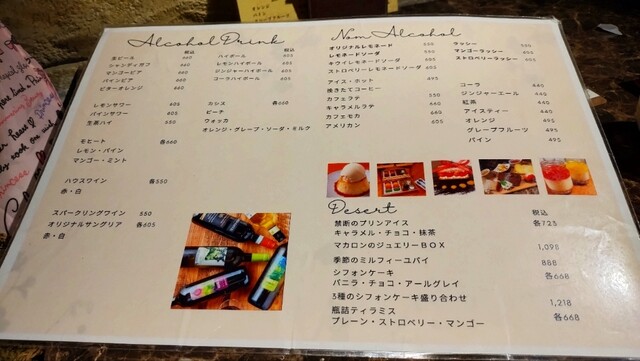 Alcohol Drink
税込
生ビール 660
シャンディガフ 660
マンゴービア 660
パインビア 660
ビターオレンジ 660
税込
ハイボール 605
レモンハイボール 605
ジンジャーハイボール 605
コーラハイボール 605
レモンサワー 605
パインサワー 605
生茶ハイ 550
カシス 各668
ピーチ
ウォッカ
オレンジ・グレープ・ソーダ・ミルク
モヒート 各660
レモン・パイン
マンゴー・ミント
ハウスワイン 各550
赤・白
スパークリングワイン 550
オリジナルサングリア 各605
赤・白
Non Alcohol
オリジナルレモネード 550
レモネードソーダ
キウイレモネードソーダ
ストロベリーレモネードソーダ 605
ラッシー
マンゴーラッシー
ストロベリーラッシー
アイス・ホット
焼きたてコーヒー 495
カフェラテ 550
キャラメルラテ 660
カフェモカ 660
アメリカン 440
コーラ 440
ジンジャーエール 440
紅茶 440
アイスティー 440
オレンジ 495
グレープフルーツ 495
パイン 495
Desert
税込
禁断のプリンアイス 各725
キャラメル・チョコ・抹茶
マカロンのジュエリーBOX 1,098
季節のミルフィーユパイ 888
シフォンケーキ 各668
バニラ・チョコ・アールグレイ
3種のシフォンケーキ盛り合わせ 1,218
瓶詰ティラミス 各668
プレーン・ストロベリー・マンゴー